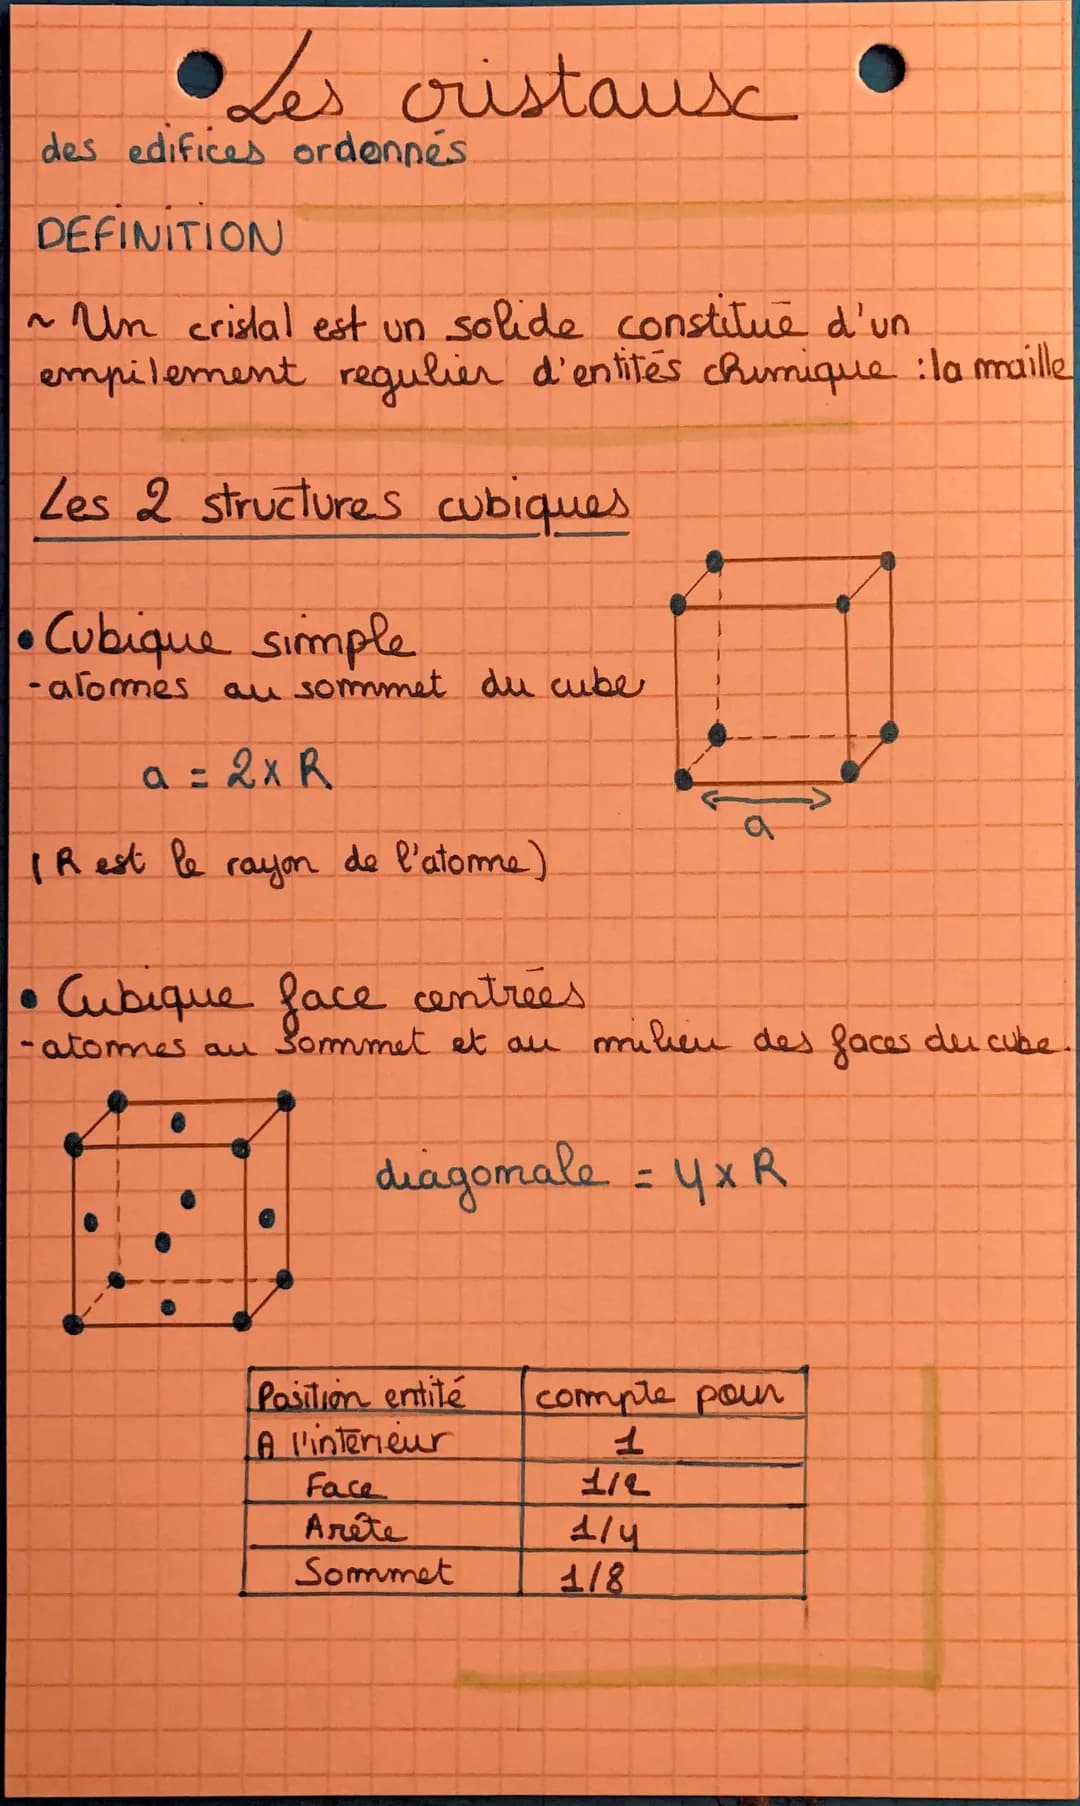 Les cristaux
des edifices ordonnés
DEFINITION
~ Un cristal est un solide constitué d'un
empilement regulier d'entités chimique : la maille
Les 2 structures cubiques
• Cubique simple
- atomes au sommet du cube
a = 2 x R
a
( R est le rayon de l'atome)
• Cubique face centrées
- atomes au sommet et au milieu des faces du cube.
diagonale = 4 x R
Position entité compte pour
A l'interieur 1
Face 1/2
Arête 1/4
Sommet 1/8